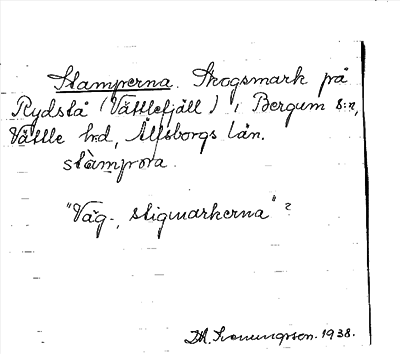 Stamperna. Skogsmark på
Rydslå (Vättlefjäll) i Bergum s:n,
Vättle hd, Älfsborgs län.
stàmpora.
"Väg-, stigmarkerna"?
1938.